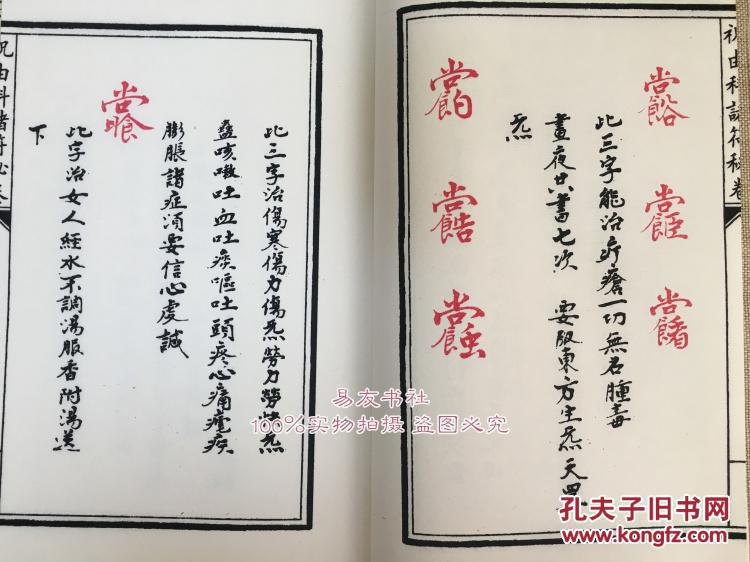 祝由科諸符秘卷
此三字能治疔瘡一切無名腫毒
晝夜共書七次 要取東方生炁天
炁
此三字治傷寒傷力傷炁勞力勞炁
咳嗽吐血吐痰嘔吐頭疼心痛瘧疾
膨脹諸症須要信心虔誠
此字治女人經水不調湯服香附湯送
下
由科諸符
易友书社
100%实物拍摄 盗图必究
孔夫子旧书网
www.kongfz.com